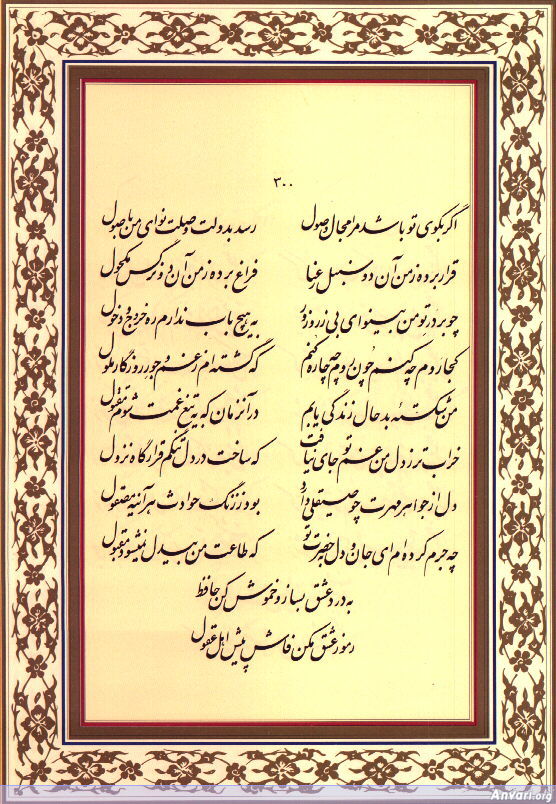 ۳۰۰
اگر بکوی تو باشد مرا مجال وصول رسد بدولت وصلت نوای من باصول
قرار برده ز من آن دو سنبل رعنا فراغ برده ز من آن دو نرگس مکحول
چو بر در تو من بینوای بی زر و زور به هیچ باب ندارم ره خروج و دخول
کجا روم چه کنم چون روم چه چاره کنم که گشته ام ز غم و جور روزگار ملول
من شکسته بدحال زندگی یابم در آن زمان که به تیغ غمت شوم مقتول
خراب تر ز دل من غم تو جای نیافت که ساخت در دل تنگم قرارگاه نزول
دل از جواهر مهرت چو صیقلی دارد بود ز زنگ حوادث هر آینه مصقول
چه جرم کرده ام ای جان و دل بحضرت تو که طاعت من بیدل نمیشود مقبول
به درد عشق بساز و خموش کن حافظ
رموز عشق مکن فاش پیش اهل عقول
Anvari.org